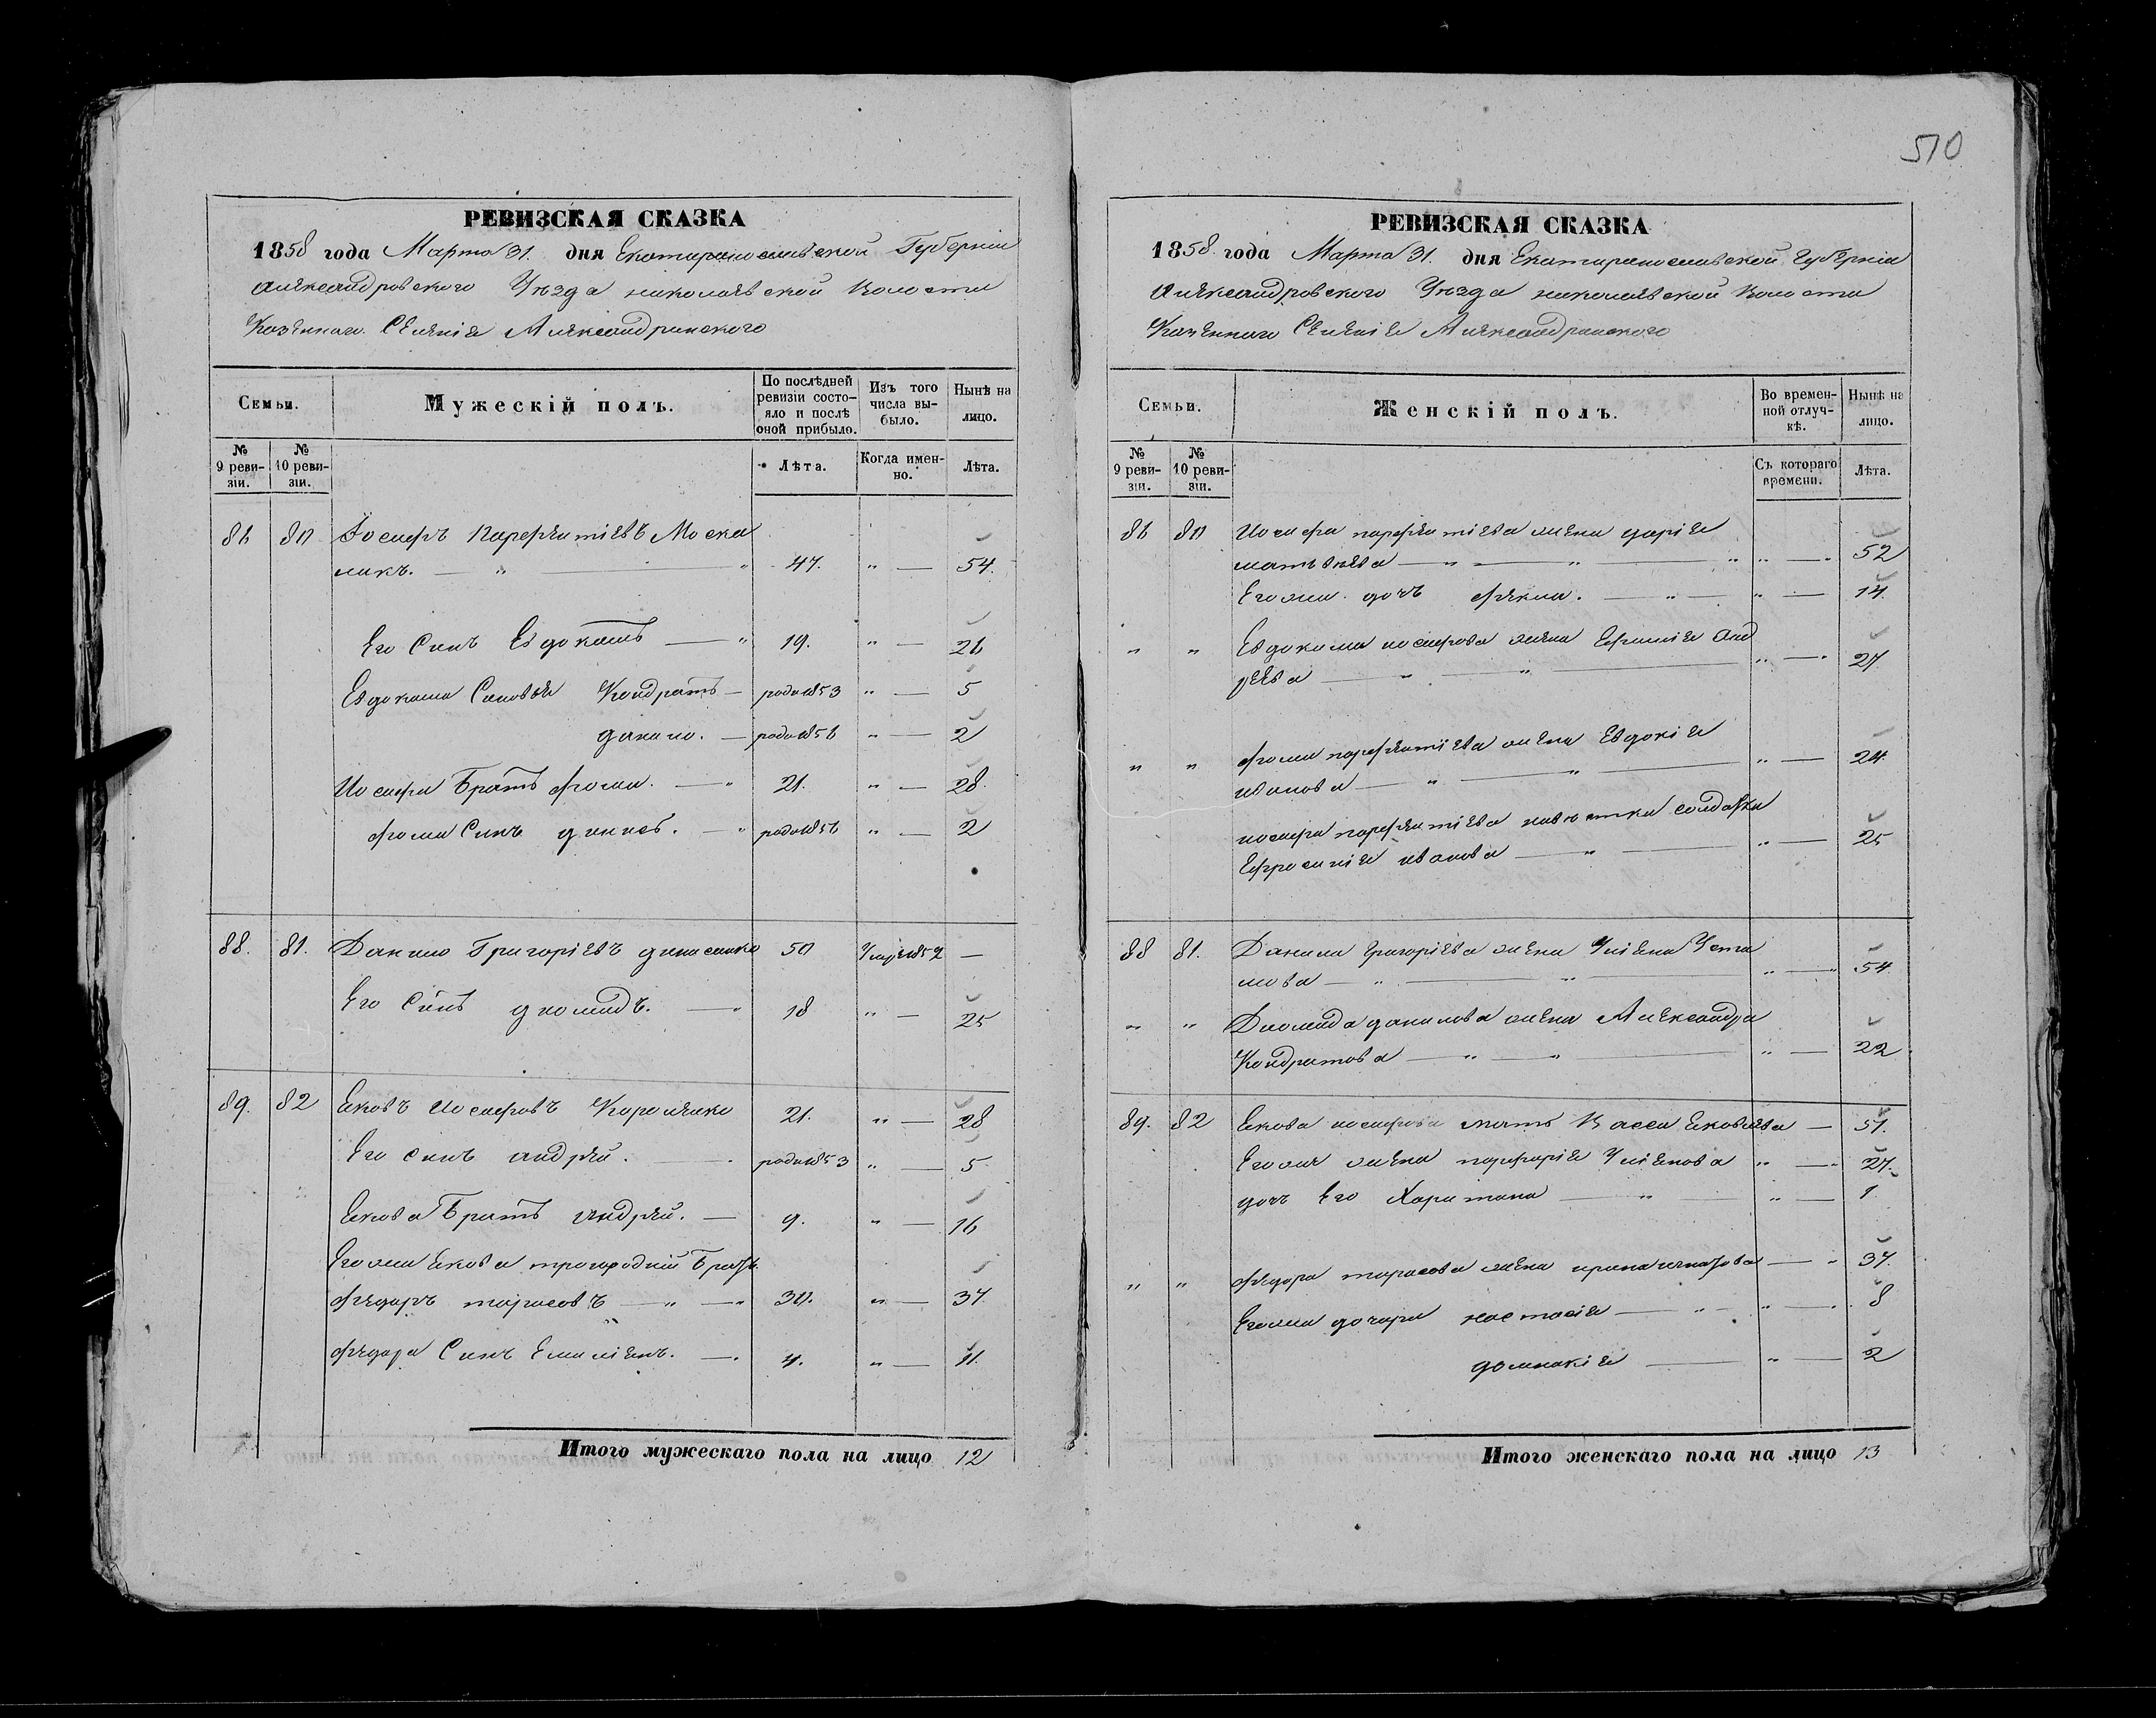 510
РЕВИЗСКАЯ СКАЗКА
1858 года Марта 31. дня Екатеринославской Губернии
Александровского Уѣзда николаевской Волости
Казенного Селенія Александринского
Семьи.
Мужескій полъ.
По послѣдней ревизіи состо-яло и послѣ оной прибыло.
Изъ того числа вы-было.
Нынѣ на лицо.
№ 9 реви-зіи.
№ 10 реви-зіи.
Лѣта.
Когда имен-но.
Лѣта.
86 80 Іосифъ Парфентіевъ Моска
ликъ. — " — " 47. " — 54.
Его Синъ Евдокимъ — " 19. " — 26
Евдокима Сыновья Кондратъ — родил853 " — 5
данило. — родил856 " — 2
Иосифа Братъ фома. — " 21. " — 28.
фомы Синъ денисъ. — " родил856 " — 2
88. 81. Данило Григоріевъ денисенко 50 Умер1852 —
Его Синъ диомидъ. — 18 " — 25
89. 82 Яковъ Иосифовъ Короленко 21. " — 28
Его синъ андрей. — родил853 " — 5
Якова Братъ андрей. — 9. " — 16
Егожъ Якова троюродній Братъ
федоръ тарасовъ — " — " 30. " — 37
федора Синъ Емиліянъ. — 4. " — 11.
Итого мужескаго пола на лицо 12
РЕВИЗСКАЯ СКАЗКА
1858 года Марта 31. дня Екатеринославской Губерніи
Александровского Уѣзда николаевской Волости
Казенного Селенія Александринского
Семьи.
Женскій полъ.
Во времен-ной отлуч-кѣ.
Нынѣ на лицо.
№ 9 реви-зіи.
№ 10 реви-зіи.
Съ котораго времени.
Лѣта.
86 80 Иосифа парфентіева жена дарія
матвѣева — " — " — " " — " 52
Егожъ дочъ фекла. — " — " — 14.
" " Евдокима иосифова жена Ефимія Анд
реева — " — " — " — " 27.
" " фомы парфентіева жена Евдокія
иванова — " — " — " — 24.
иосифа парфентіева невѣстка солдатка
Ефросинія иванова — " — " — 25
88 81. Данила григоріева жена Уліяна Уста
мова — " — " — " — " 54.
" " Диомида данилова жена Александра
Кондратова — " — " — " — 22
89. 82 Якова иосифова мать Васса Яковлева — 51.
Егожъ жена парфорія Уліянова " — " 27.
дочъ Его Харитина — " — " — 1.
" " федора тарасова жена ирина игнатова — " 37.
Егожъ дочери настасія — " — " — " 8
домникія — " — 2
Итого женскаго пола на лицо 13